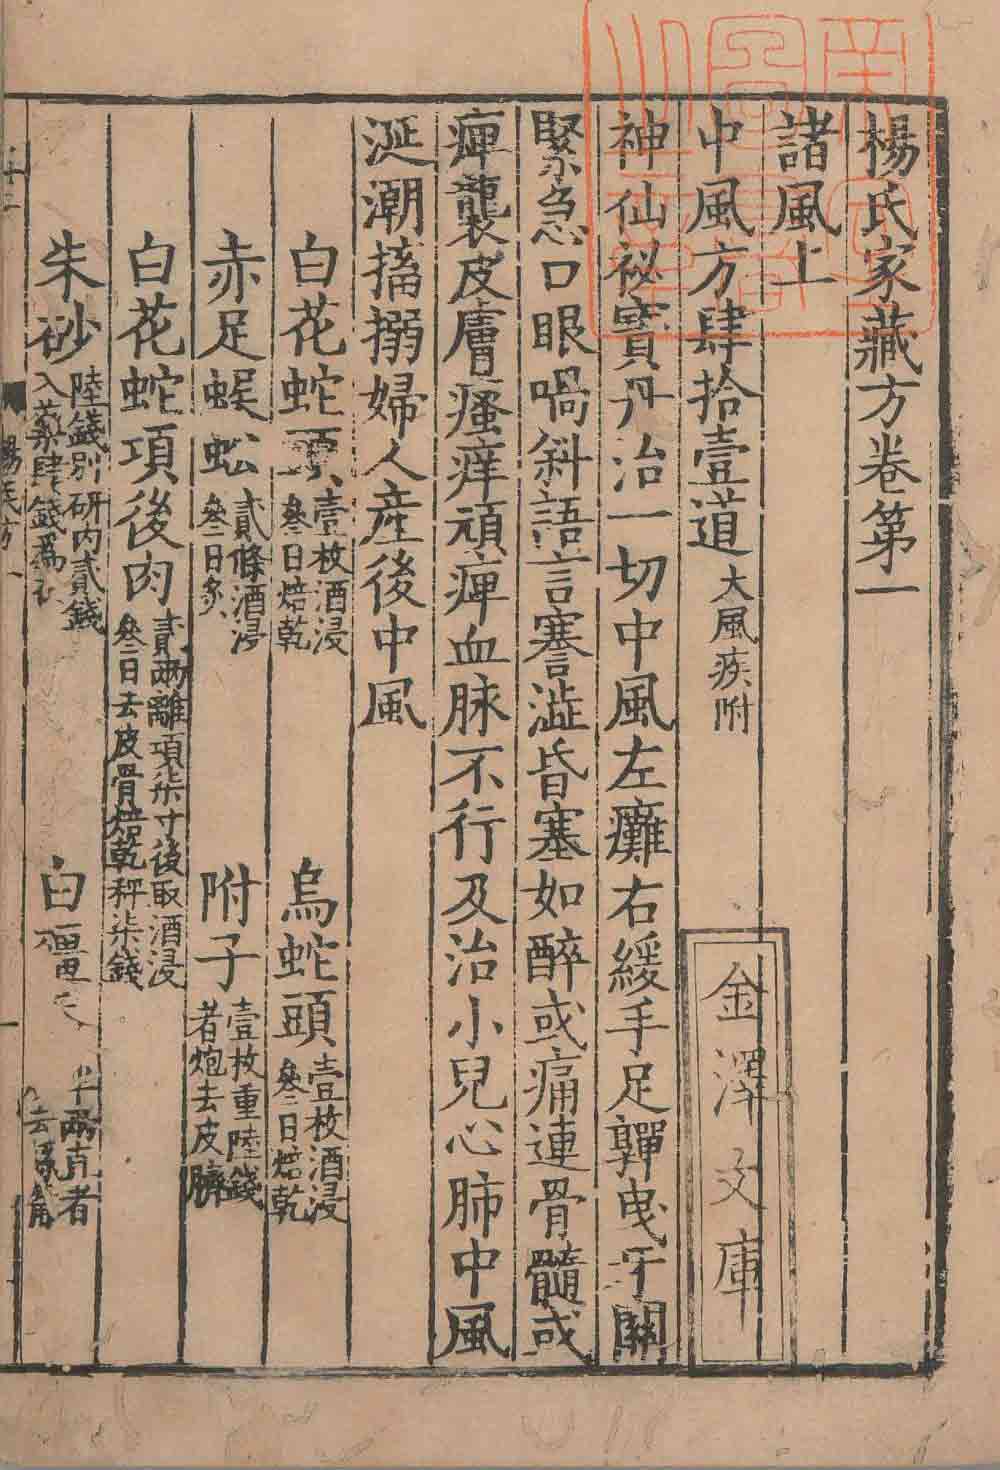 楊氏家藏方卷第一
諸風上
中風方肆拾壹道 大風疾附
金澤文庫
神仙祕寳丹治一切中風左癱右緩手足嚲曳牙關
緊急口眼喎斜語言謇澁昏塞如醉或痛連骨髓或
痺襲皮膚瘙痒頑痺血脉不行及治小兒心肺中風
涎潮搐搦婦人產後中風
白花蛇頭 壹枚酒浸
叄日焙乾
烏蛇頭 壹枚酒浸
叄日焙乾
赤足蜈蚣 貳條酒浸
叄日炙
附子 壹枚重陸錢
者炮去皮臍
白花蛇項後肉 貳兩離項柒寸後取酒浸
叄日去皮骨焙乾秤柒錢
朱砂 陸錢別研內貳錢
入藥肆錢爲衣
白殭
半兩直者
去絲